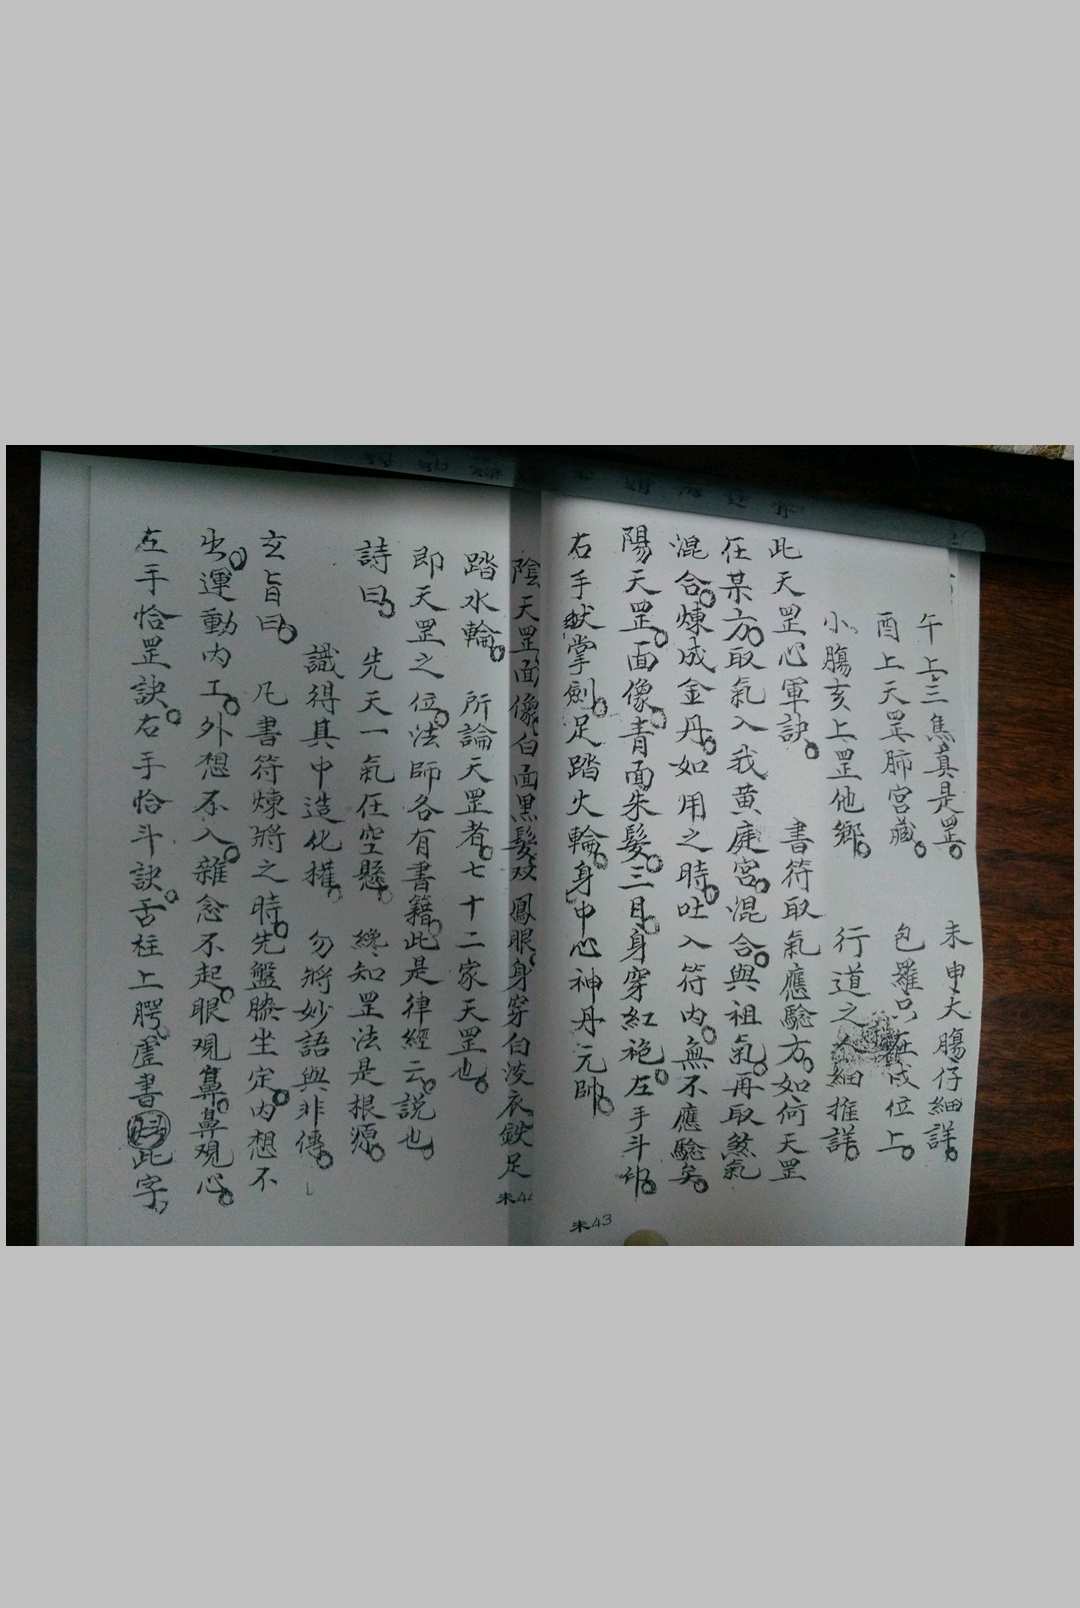 午上三焦真是罡。 未申大腸仔細詳。
酉上天罡肺宮藏。 包羅只在戌位上。
小腸亥上罡他鄉。 行道之人細推詳。
此天罡心軍訣。 書符取氣應驗方。如何天罡
在某方。取氣入我黃庭宮。混合與祖氣。再取煞氣
混合。煉成金丹。如用之時。吐入符內。無不應驗矣。
陽天罡。面像。青面朱髮。三目。身穿紅袍。左手斗印。
右手掌劍。足踏火輪。身中心神丹元帥。
朱43
陰天罡面像。白面黑髮双鳳眼。身穿白淡衣。鉄足
踏水輪。 所論天罡者。七十二家天罡也。
即天罡之位。法師各有書籍。此是律經云。説也。
詩曰。 先天一氣在空懸。 纔知罡法是根源。
識得其中造化權。 勿將妙語與非傳。
玄旨曰。 凡書符煉將之時。先盤膝坐定。內想不
出。運動內工。外想不入。雜念不起。眼觀鼻。鼻觀心。
左手恰罡訣。右手恰斗訣。舌柱上腭。虛書此字。